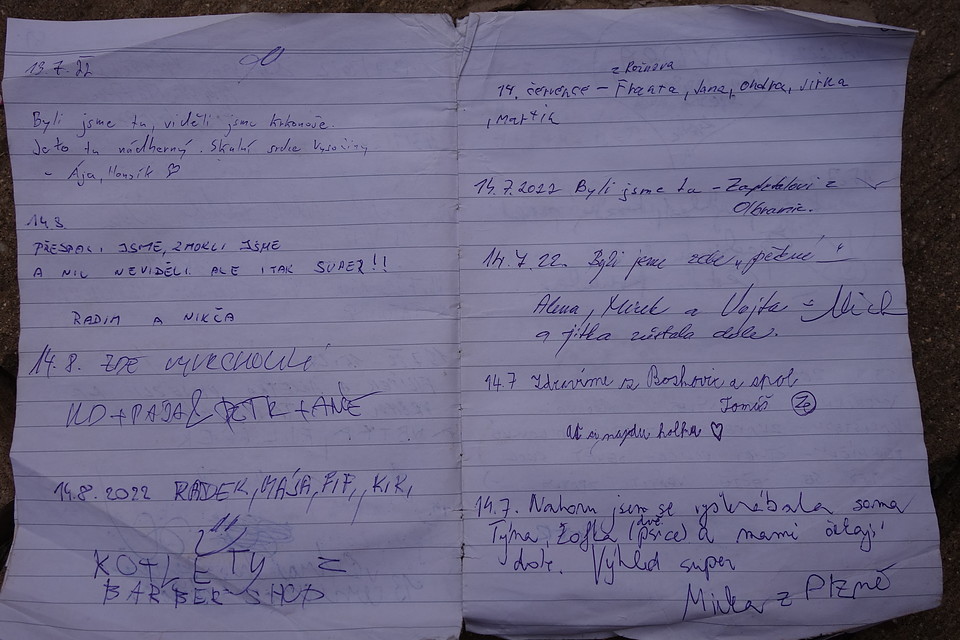 13.7.22
Byli jsme tu, viděli jsme Krkonoše.
Je to tu nádherný. Skalní srdce Vysočiny
- Ája, Honzík ♡
14.8.
PŘESPALI JSME, ZMOKLI JSME
A NIC NEVIDĚLI. ALE I TAK SUPER!!
RADIM A NIKČA
14.8. ZDE
PETR +
14.8.2022 RADEK, MÁJA, FIF, KIK,
KOTLETY =
BARBER SHOP
z Rožnova
14. července – Franta, Jana, Ondra, Jirka
, Martin
14.7.2022 Byli jsme tu – z
Olbramic.
14.7.22. Byli jsme zde
Alena, Mirek a Vojta
a Jitka zůstala dole.
14.7 Zdravíme z Boskovic a spol
Tomáš
Ať si najdu holku ♡
14.7. Nahoru jsem se vyškrábala sama
Týna, Žofka (dvě psice) a mami čekají
dole. Výhled super
Mirka z Plzně